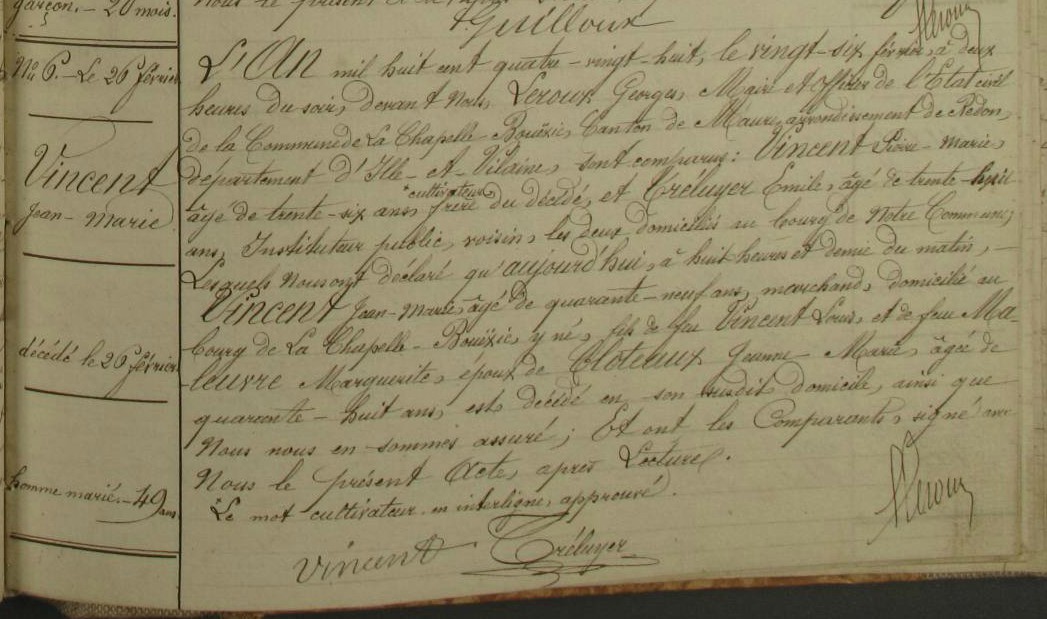 garçon. - 20 mois.
Guilloux
Leroux
No 6. - Le 26 février
Vincent
Jean-Marie
décédé le 26 février.
homme marié. - 49 ans.
L'An mil huit cent quatre-vingt-huit, le vingt-six février, à deux
heures du soir, devant Nous, Leroux Georges, Maire et Officier de l'Etat civil
de la Commune de La Chapelle-Bouëxic, Canton de Maure, arrondissement de Redon,
département d'Ille-et-Vilaine, sont comparus: Vincent Pierre-Marie,
* cultivateur,
âgé de trente-six ans, frère du décédé, et Tréluyer Emile, âgé de trente-huit
ans, Instituteur public, voisin, les deux domiciliés au bourg de Notre Commune;
Lesquels Nous ont déclaré qu'aujourd'hui, à huit heures et demie du matin, -
Vincent Jean-Marie, âgé de quarante-neuf ans, marchand, domicilié au
bourg de La Chapelle-Bouëxic, y né, fils de feu Vincent Louis, et de feue Ma-
-leuvre Marguerite, époux de Cloteaux Jeanne Marie, âgée de
quarante-huit ans, est décédé en son susdit domicile, ainsi que
Nous nous en sommes assuré; Et ont les Comparants, signé avec
Nous le présent Acte, après Lecture.
* Le mot cultivateur en interligne, approuvé.
Vincent Tréluyer
Leroux